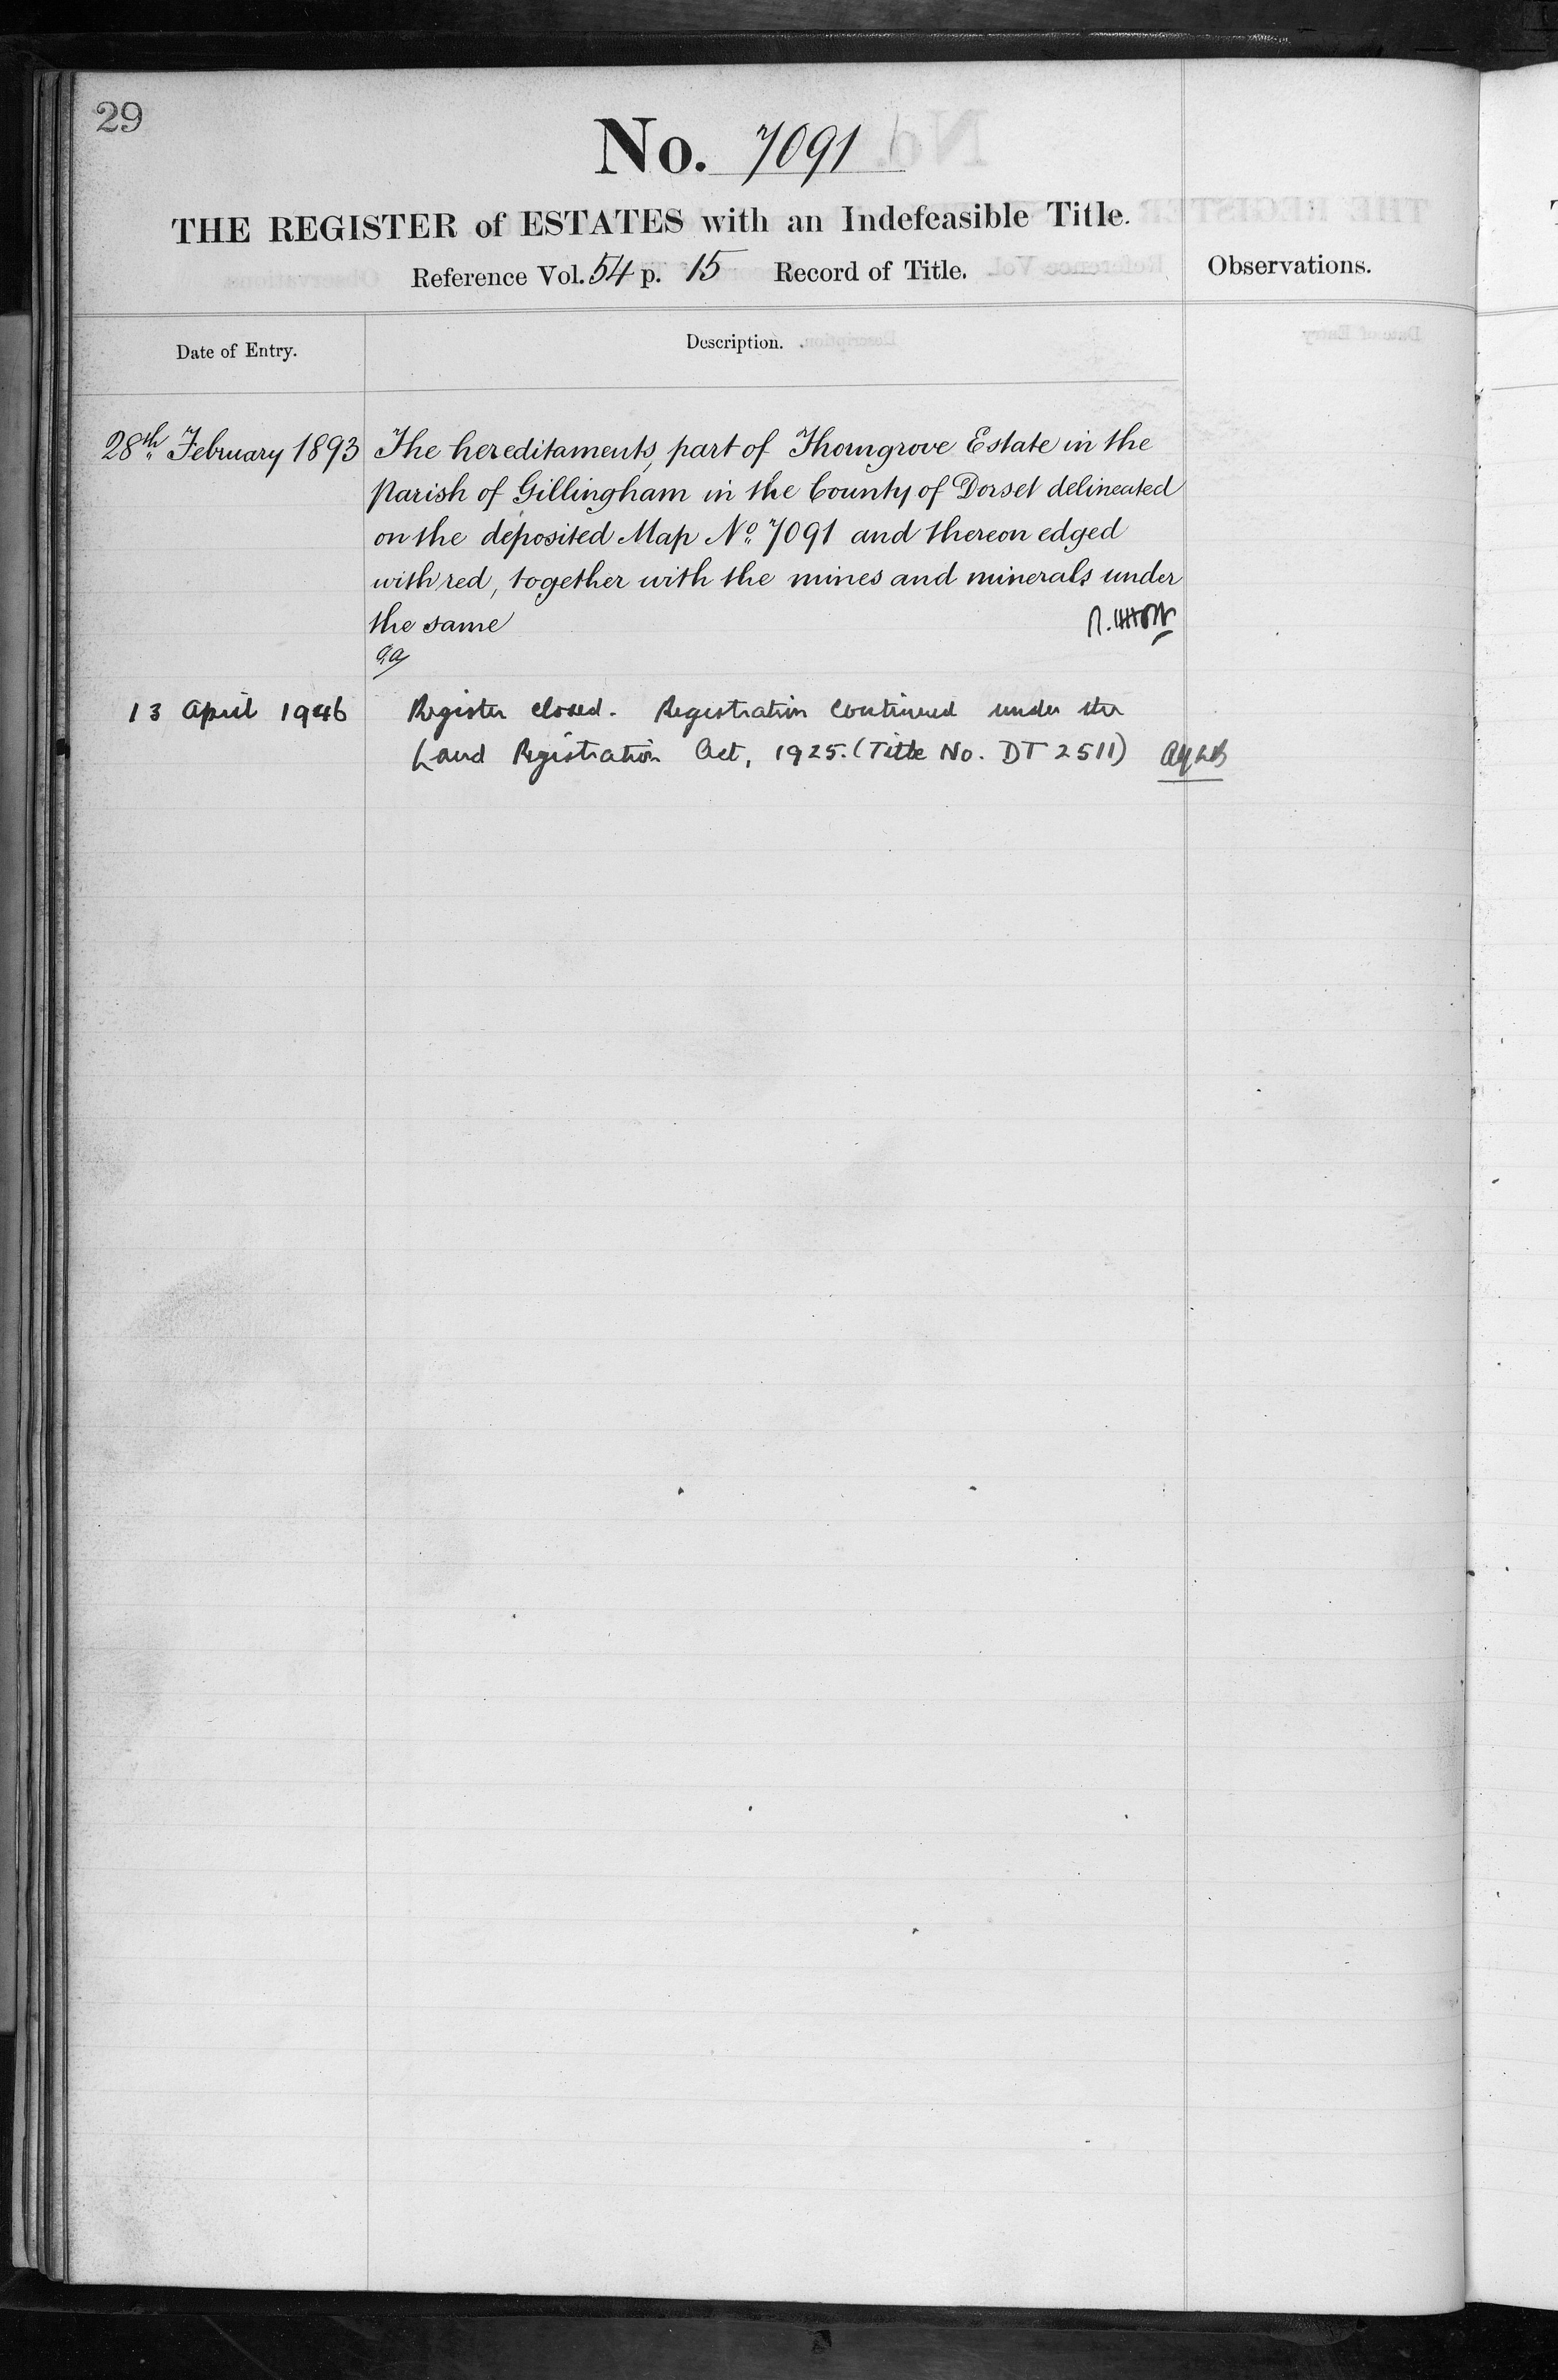 29
No. 7091
THE REGISTER of ESTATES with an Indefeasible Title.
Reference Vol. 54 p. 15 Record of Title.
Observations.
Date of Entry.
Description.
28th February 1893 The hereditaments, part of Thorngrove Estate in the
Parish of Gillingham in the County of Dorset delineated
on the deposited Map No. 7091 and thereon edged
with red, together with the mines and minerals under
the same
13 April 1946 Register closed. Registration continued under the
Land Registration Act, 1925. (Title No. DT 2511)